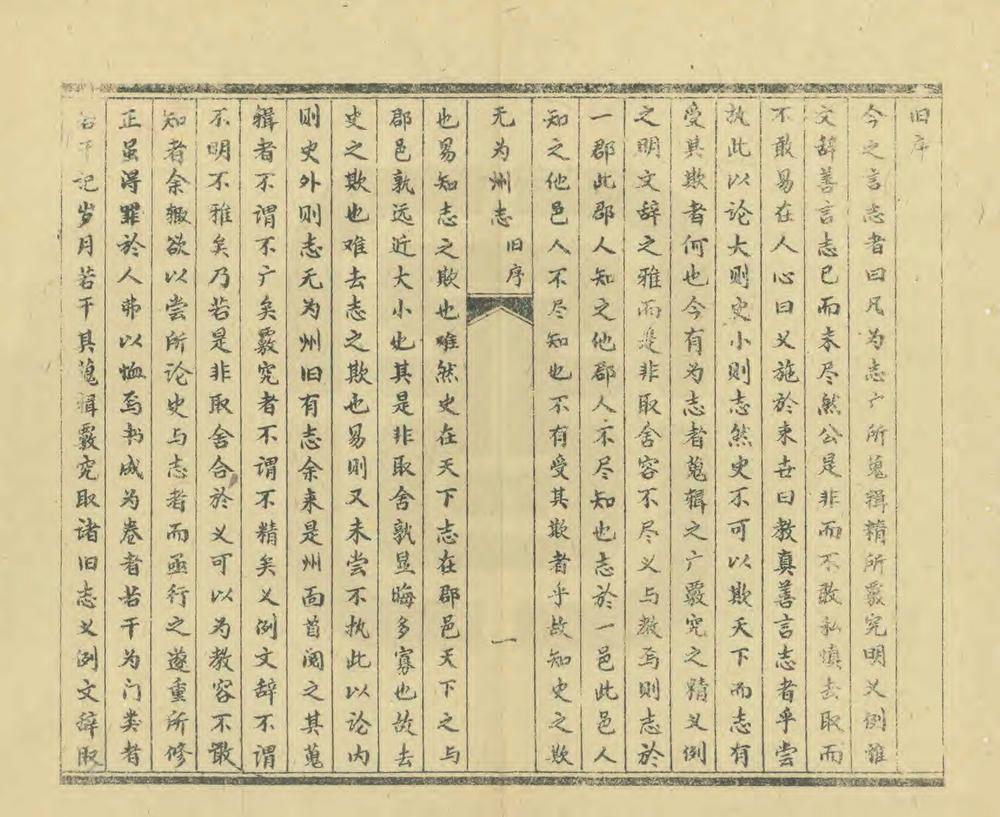 旧序
今之言志者曰凡为志广所蒐辑精所覈究明义例雅
文辞善言志已而未尽然公是非而不敢私慎去取而
不敢易在人心曰义施於来世曰教真善言志者乎尝
执此以论大则史小则志然史不可以欺天下而志有
受其欺者何也今有为志者蒐辑之广覈究之精义例
之明文辞之雅而是非取舍容不尽义与教焉则志於
一郡此郡人知之他郡人不尽知也志於一邑此邑人
知之他邑人不尽知也不有受其欺者乎故知史之欺
无为州志 旧序 一
也易知志之欺也难然史在天下志在郡邑天下之与
郡邑孰远近大小也其是非取舍孰显晦多寡也故去
史之欺也难去志之欺也易则又未尝不执此以论内
则史外则志无为州旧有志余来是州面首阅之其蒐
辑者不谓不广矣覈究者不谓不精矣义例文辞不谓
不明不雅矣乃若是非取舍合於义可以为教容不敢
知者余辄欲以尝所论史与志者而亟行之遂重所修
正虽得罪於人弗以恤焉书成为卷者若干为门类者
若干记岁月若干其蒐辑覈究取诸旧志义例文辞取